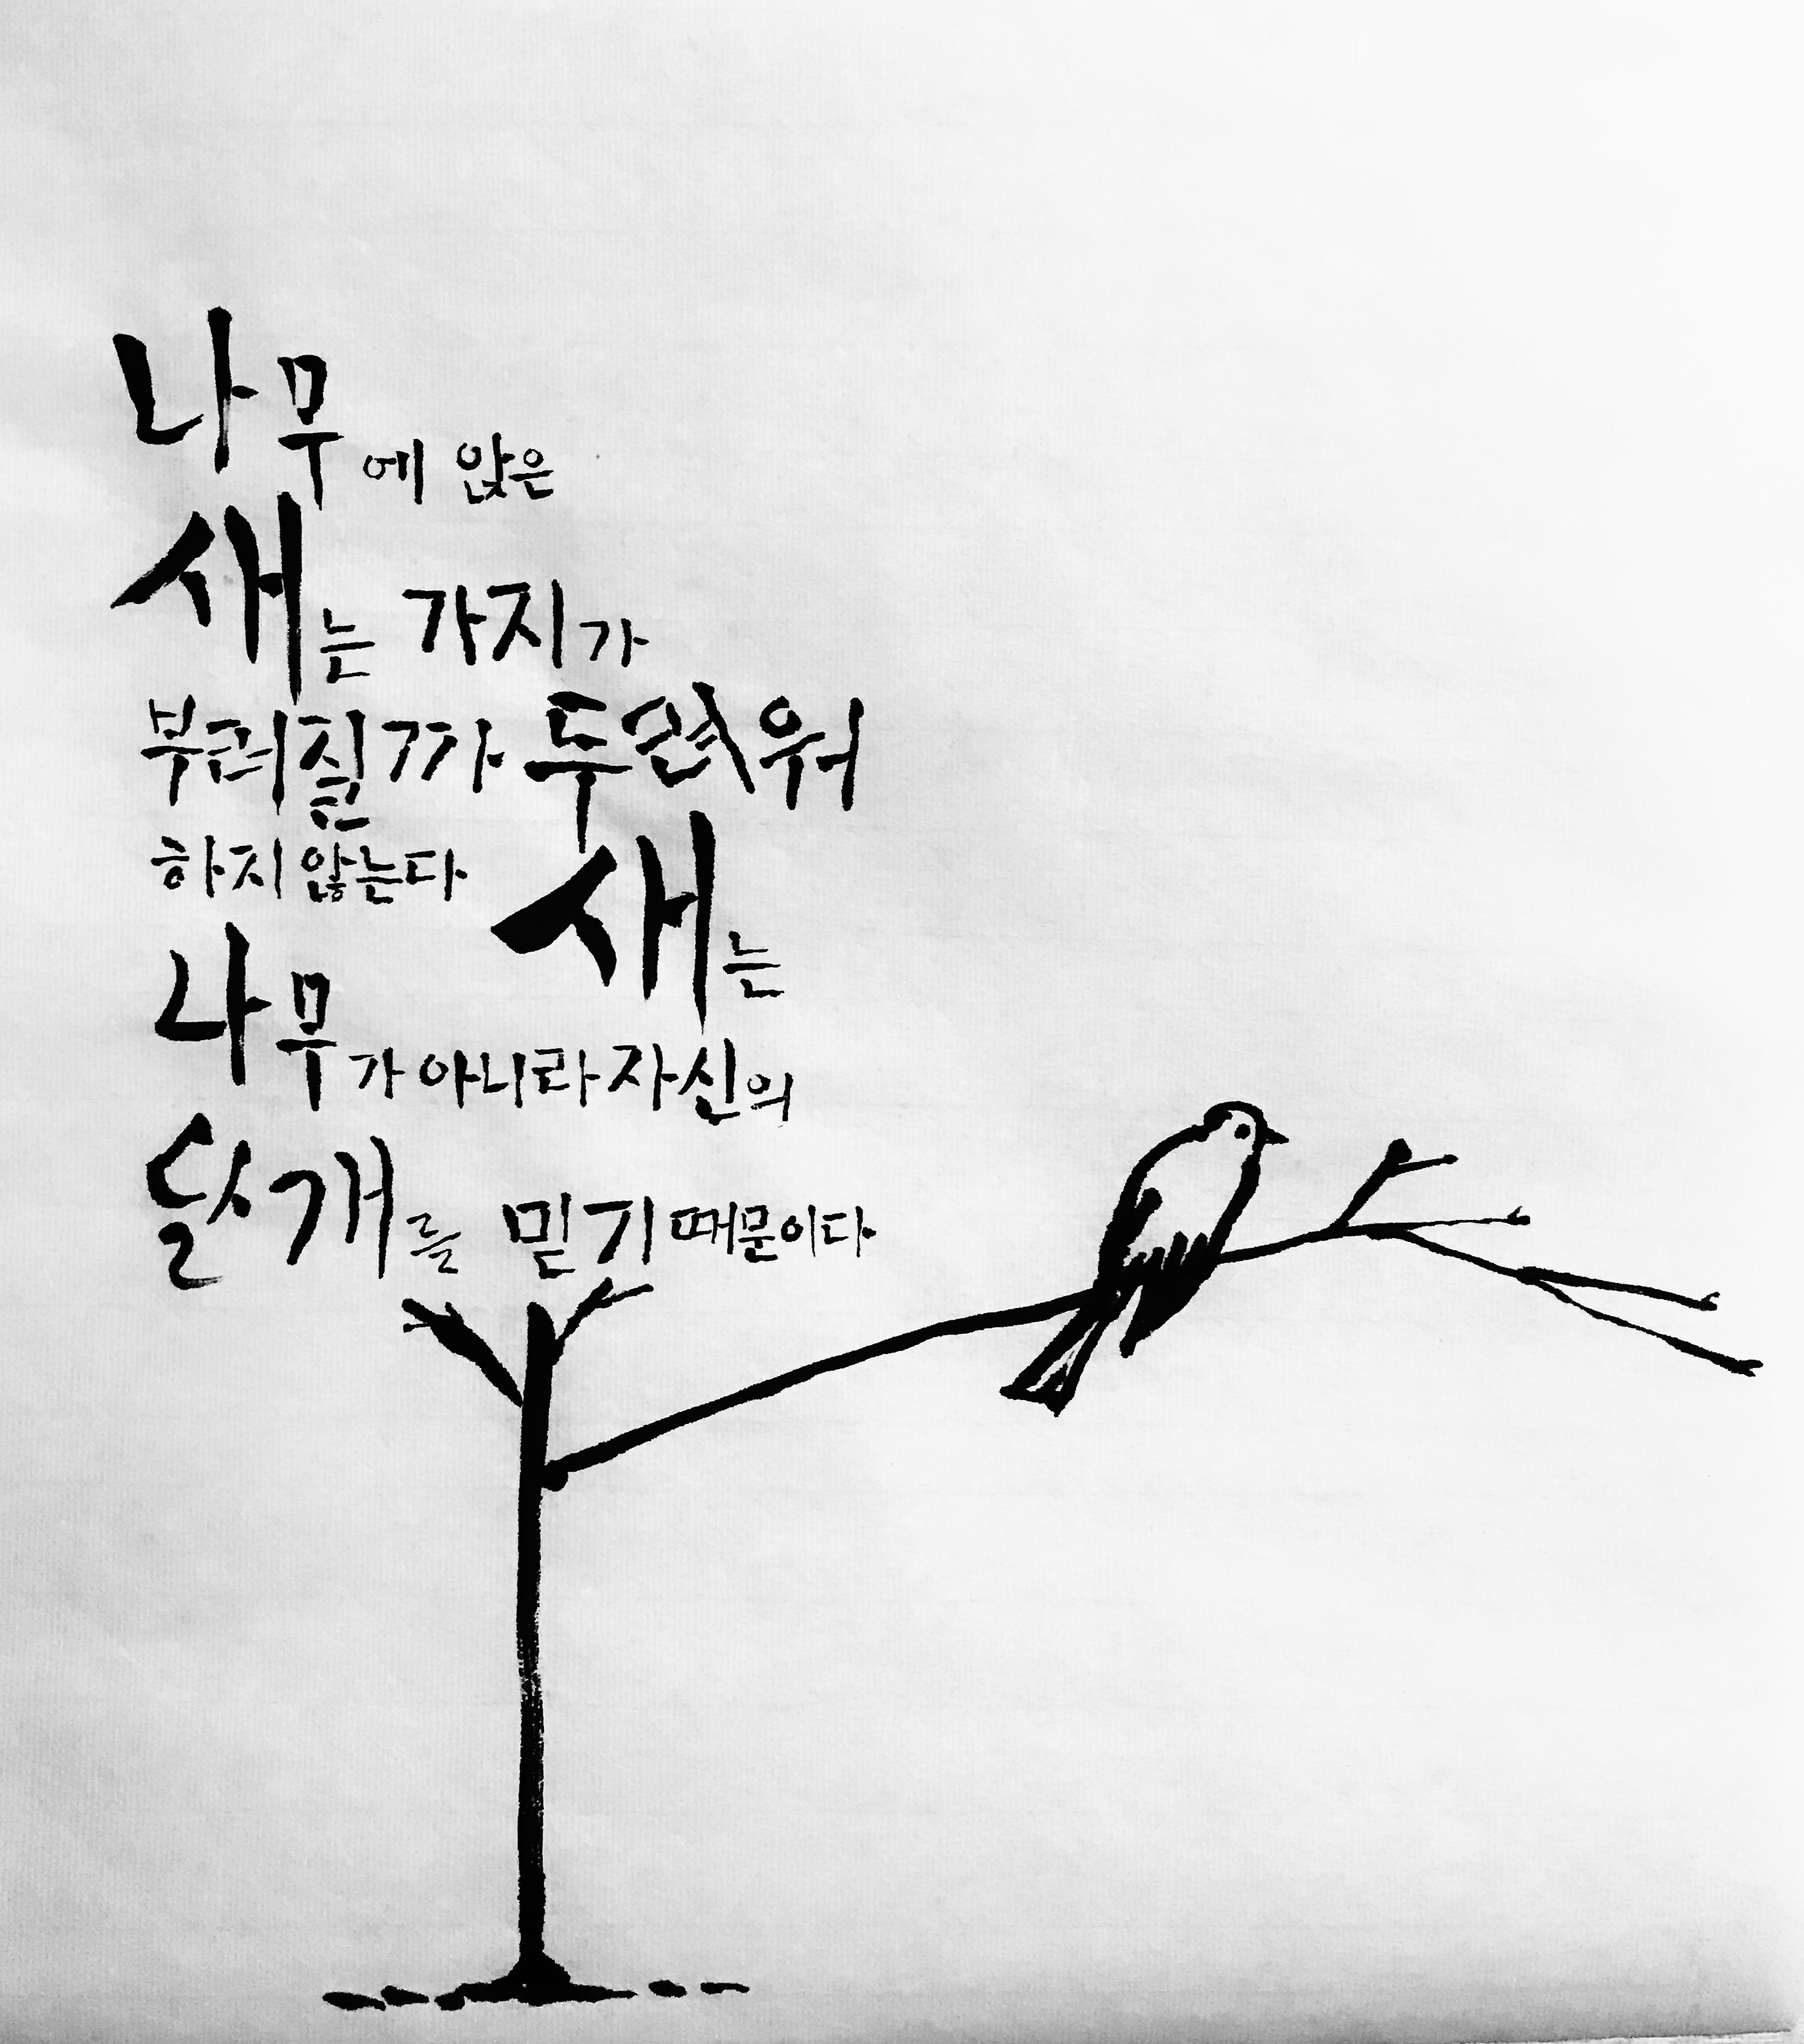 나무에 앉은
새는 가지가
부러질까 두려워
하지 않는다 새는
나무가 아니라 자신의
날개를 믿기 때문이다